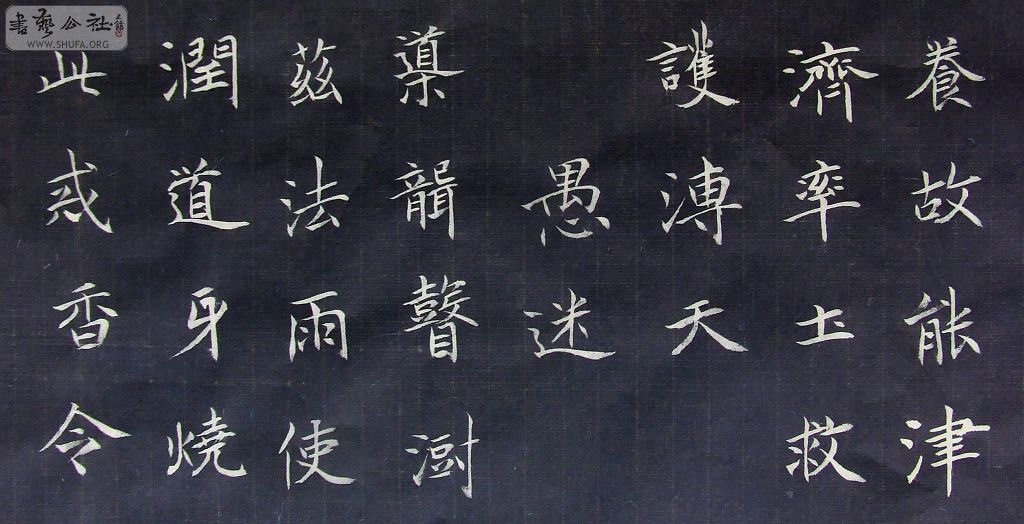 養故能津
濟率土救
護溥天
愚迷
導聾瞽澍
茲法雨使
潤道身燒
此戒香令
書藝公社
WWW.SHUFA.ORG